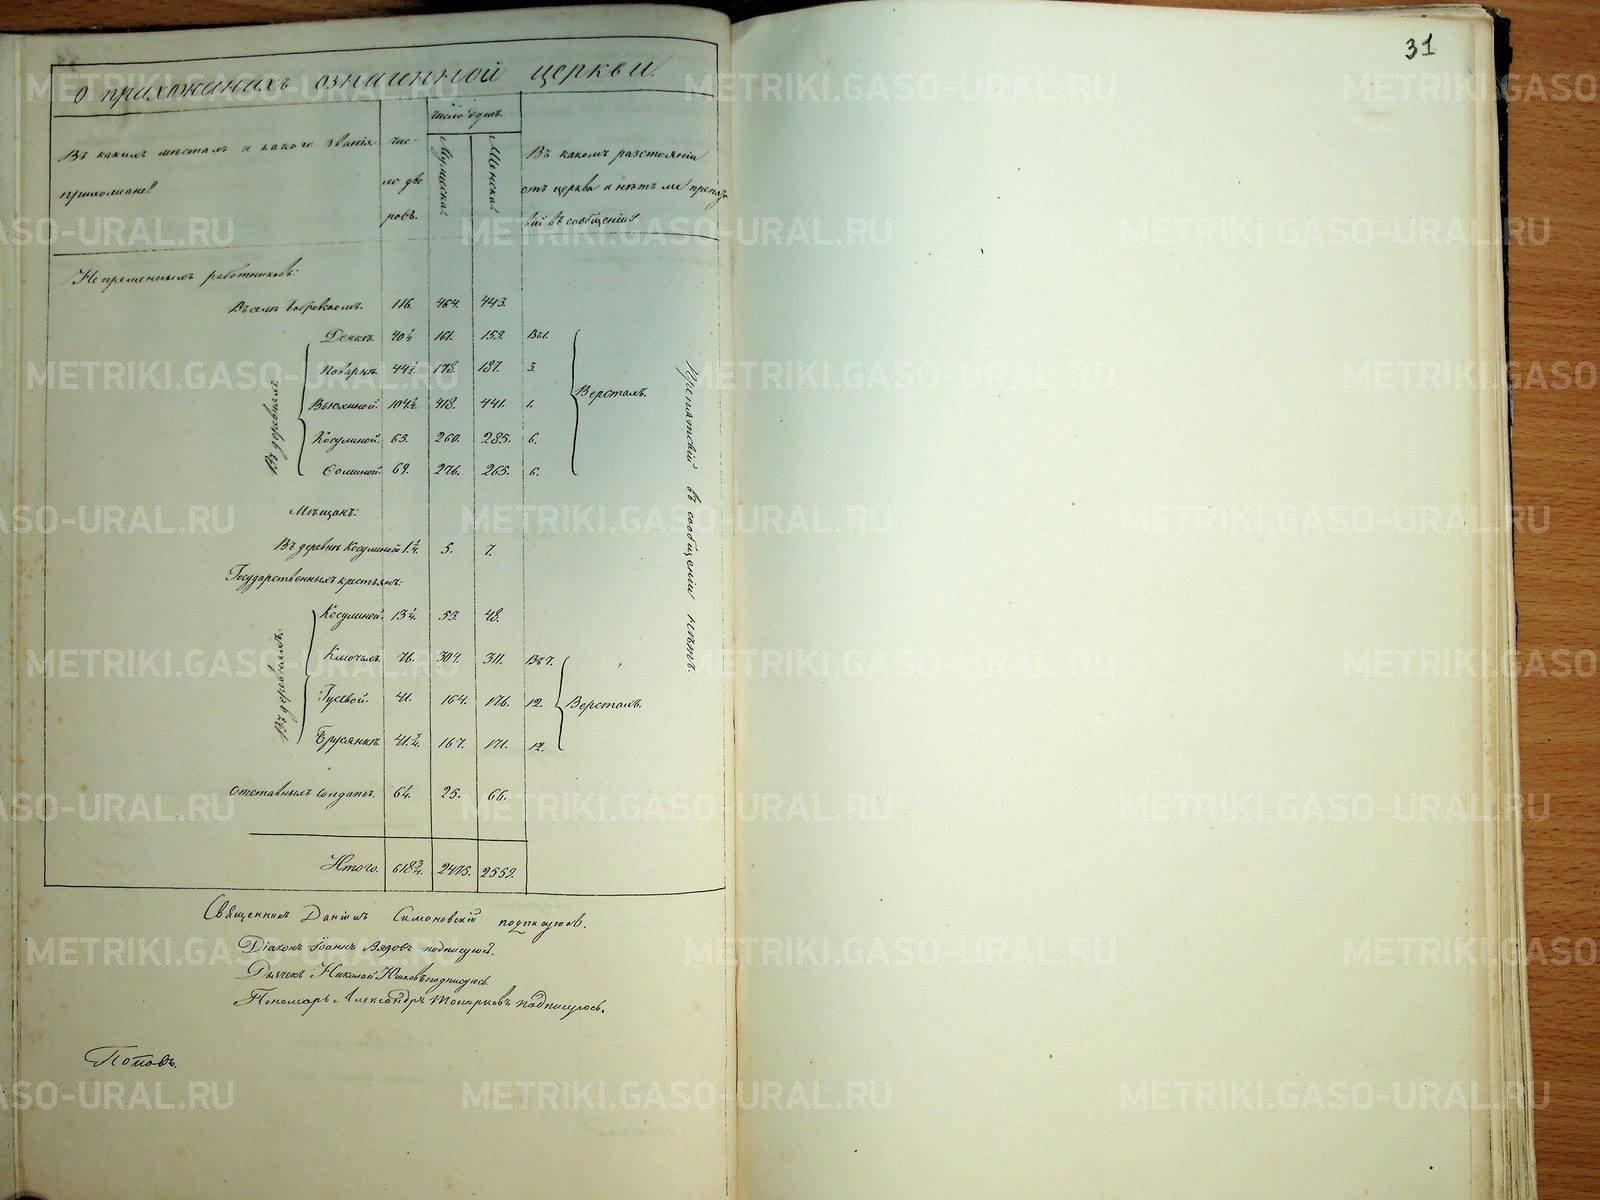 31
О прихожанахъ означенной церкви.
Въ какихъ мѣстахъ и какого званія прихожане?
Число дворовъ.
Число душъ.
Мужеска.
Женска.
Въ какомъ разстояніи отъ церкви и нѣтъ ли препят-
вій въ сообщеніи?
Непремѣнныхъ работниковъ:
Въ селѣ 116. 464. 443.
Въ деревняхъ
40¼ 161. 159. Въ 1.
Поварнѣ. 44½. 178. 187. 3.
Вьюхиной. 104½. 418. 441. 1.
Косулиной. 65. 260. 285. 6.
69. 276. 265. 6.
Верстахъ.
Препятствій въ сообщеніи нѣтъ.
Мѣщанъ:
Въ деревнѣ Косулиной 1¼. 5. 7.
Государственныхъ крестьянъ:
Въ деревняхъ.
Косулиной. 13¼. 53. 48.
Ключахъ. 76. 304. 311. Въ 7.
Гусевой. 41. 164. 176. 12.
Брусянкѣ. 41¾. 167. 171. 12.
Верстахъ.
Отставныхъ солдатъ. 6¼. 25. 66.
Итого. 618¾. 2475. 2559.
Священникъ Даніилъ Симоновскій подписуюсь.
Діаконъ Іоаннъ Вязовъ подписуюсь.
Дьячекъ Николай подписуюсь
Пономарь Александръ Топорковъ подписуюсь.
Поповъ.
METRIKI.GASO-URAL.RU